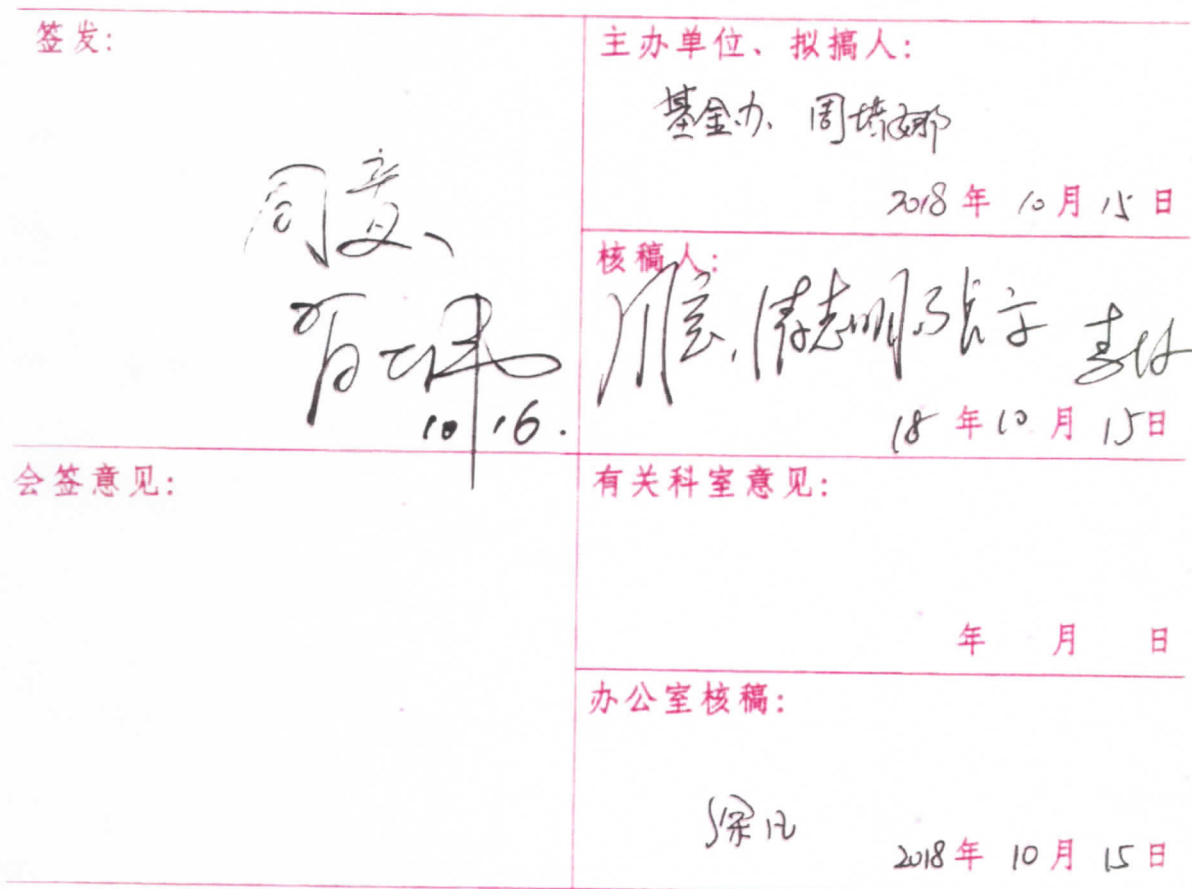 签发:
同意、
10.16.
主办单位、拟搞人:
基金办、周培娜
2018年10月15日
核稿人:
18年10月15日
会签意见:
有关科室意见:
年 月 日
办公室核稿:
2018年10月15日